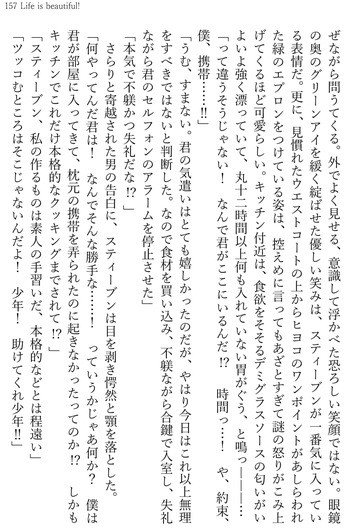 157 Life is beautiful!
ぜながら問うてくる。外でよく見せる、意識して浮かべた恐ろしい笑顔ではない。眼鏡
の奥のグリーンアイを緩く綻ばせた優しい笑みは、スティーブンが一番気に入ってい
る表情だ。更に、見慣れたウエストコートの上からヒヨコのワンポイントがあしらわれ
た緑のエプロンをつけている姿は、控えめに言ってもあざとすぎて謎の怒りがこみ上
げてくるほど可愛らしい。キッチン付近は、食欲をそそるデミグラスソースの匂いがい
よいよ強く漂っていて、丸十二時間以上何も入れていない胃がぐう、と鳴っ———
「って違うそうじゃない！　なんで君がここにいるんだ⁉　時間っ…！　や、約束、
僕、携帯……‼」
「うむ、すまない。君の気遣いはとても嬉しかったのだが、やはり今日はこれ以上無理
をすべきではないと判断した。なので食材を買い込み、不躾ながら合鍵で入室し、失礼
ながら君のセルフォンのアラームを停止させた」
「本気で不躾かつ失礼だな⁉」
さらりと寄越された男の告白に、スティーブンは目を剥き愕然と顎を落とした。
「何やってんだ君は！　なんでそんな勝手な……！　っていうかじゃあ何か？　僕は
君が部屋に入ってきて、枕元の携帯を弄られたのに起きなかったってのか⁉　しかも
キッチンでこれだけ本格的なクッキングまでされて⁉」
「スティーブン、私の作るものは素人の手習いだ、本格的などとは程遠い」
「ツッコむところはそこじゃないんだよ！　少年！　助けてくれ少年‼」